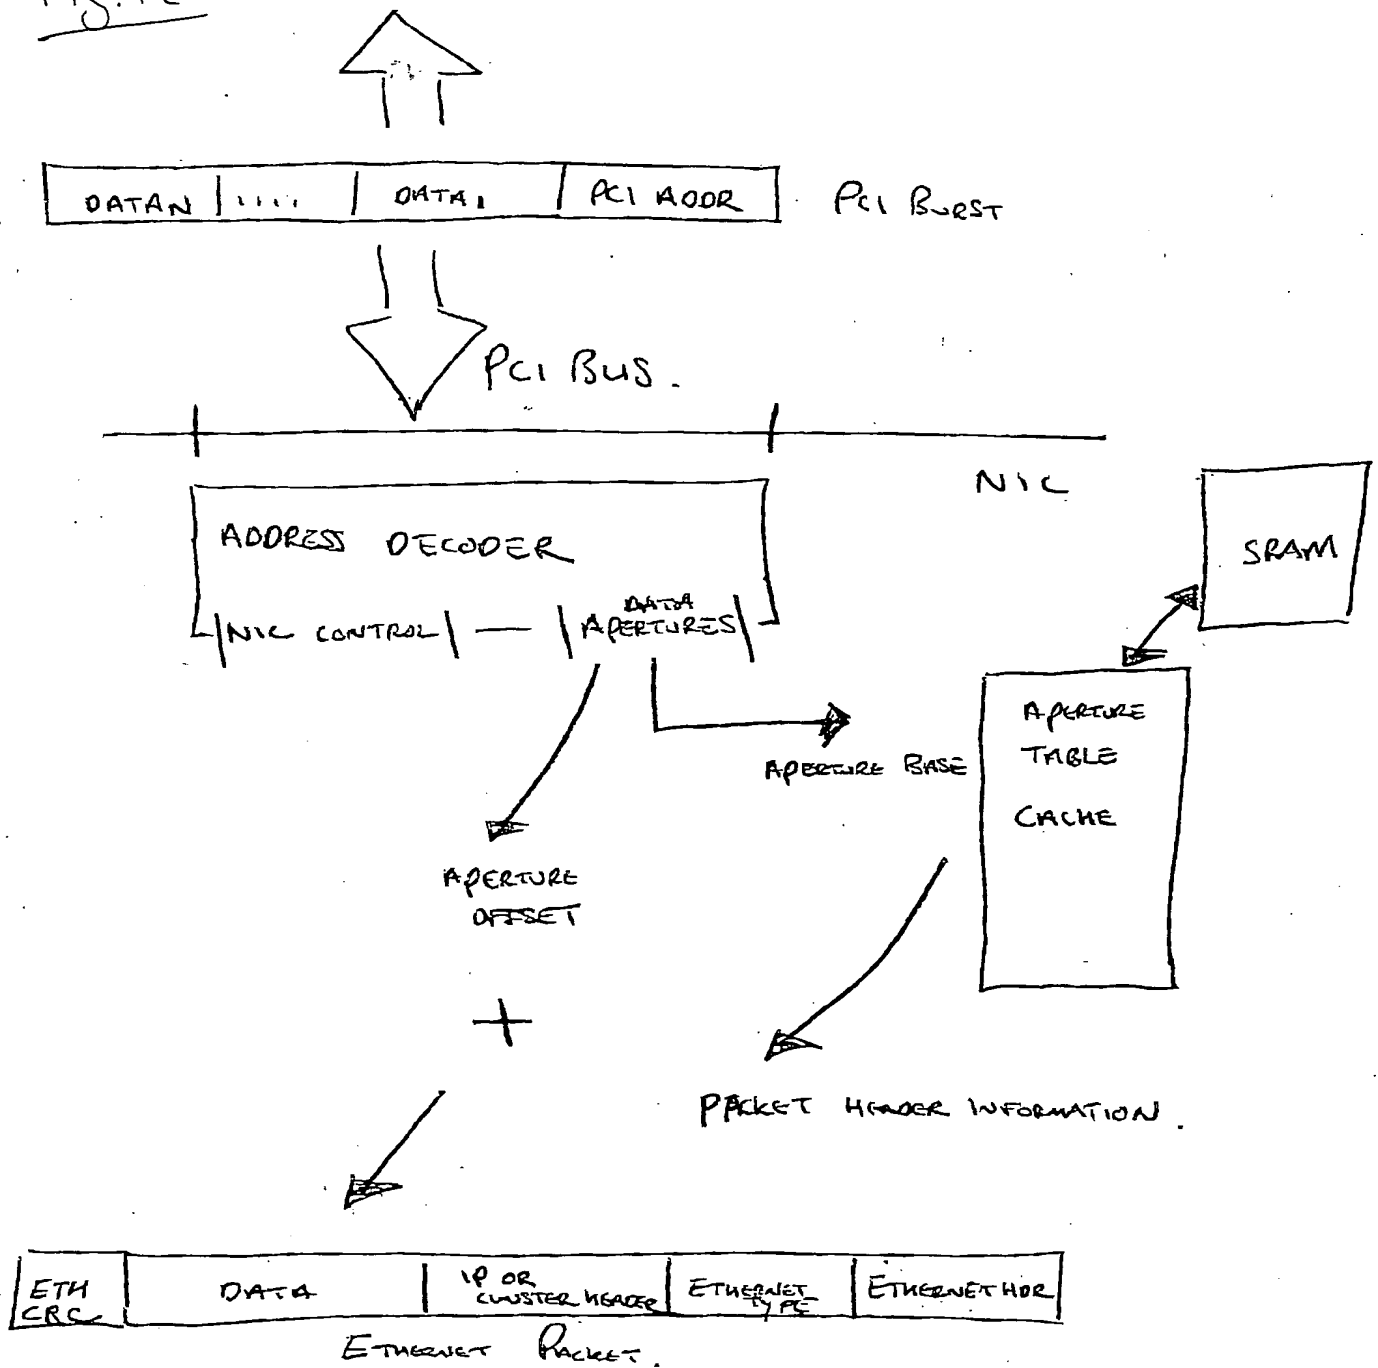 DATAN .... DATA1 PCI ADDR PCI BURST
PCI BUS.
NIC
SRAM
ADDRESS DECODER
NIC CONTROL — DATA
APERTURES
APERTURE
TABLE
CACHE
APERTURE BASE
APERTURE
OFFSET
+
PACKET HEADER INFORMATION.
ETH
CRC
DATA
IP OR
CLUSTER HEADER
ETHERNET
TYPE
ETHERNET HDR
ETHERNET PACKET.